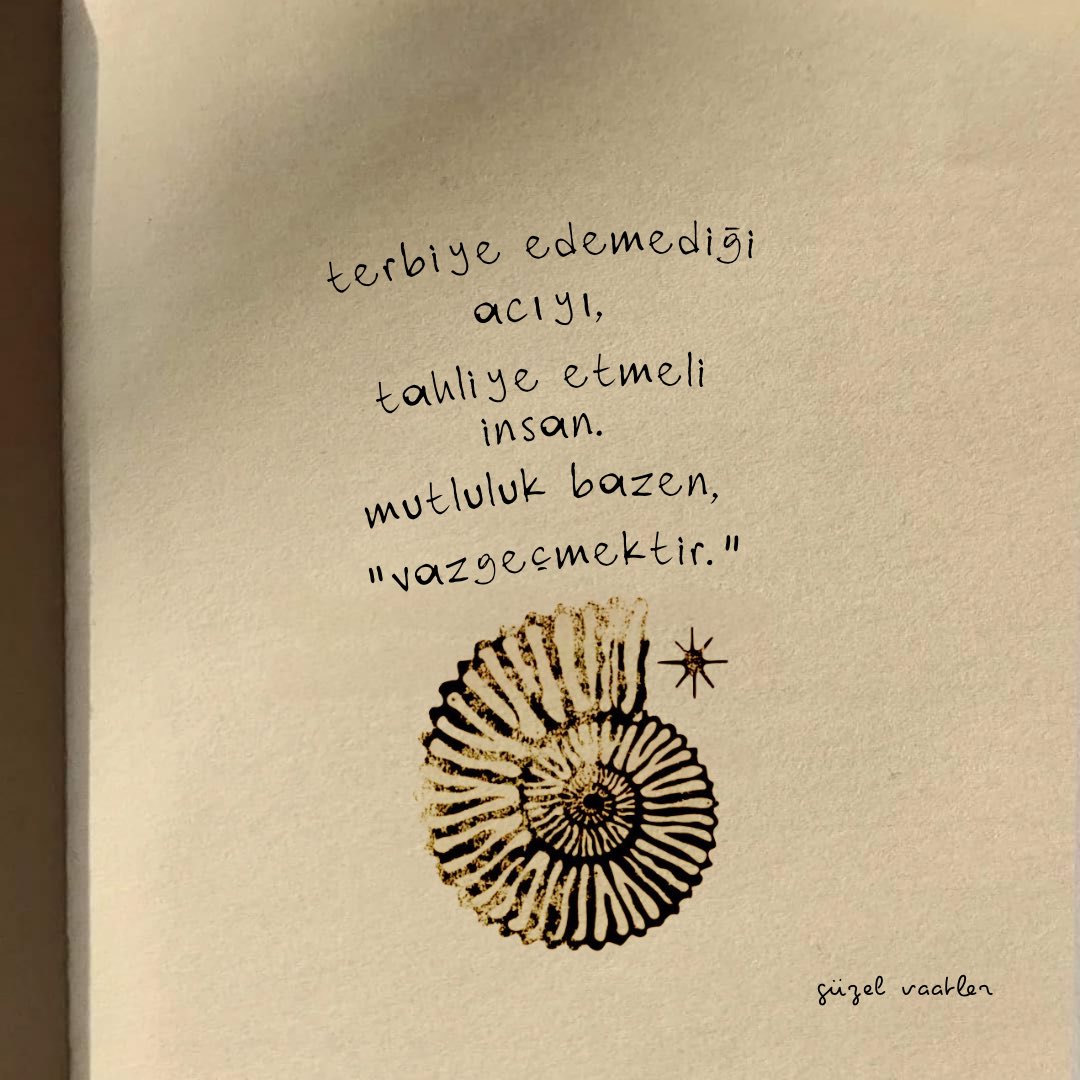 terbiye edemediği
acıyı,
tahliye etmeli
insan.
mutluluk bazen,
"vazgeçmektir."
güzel vaatler